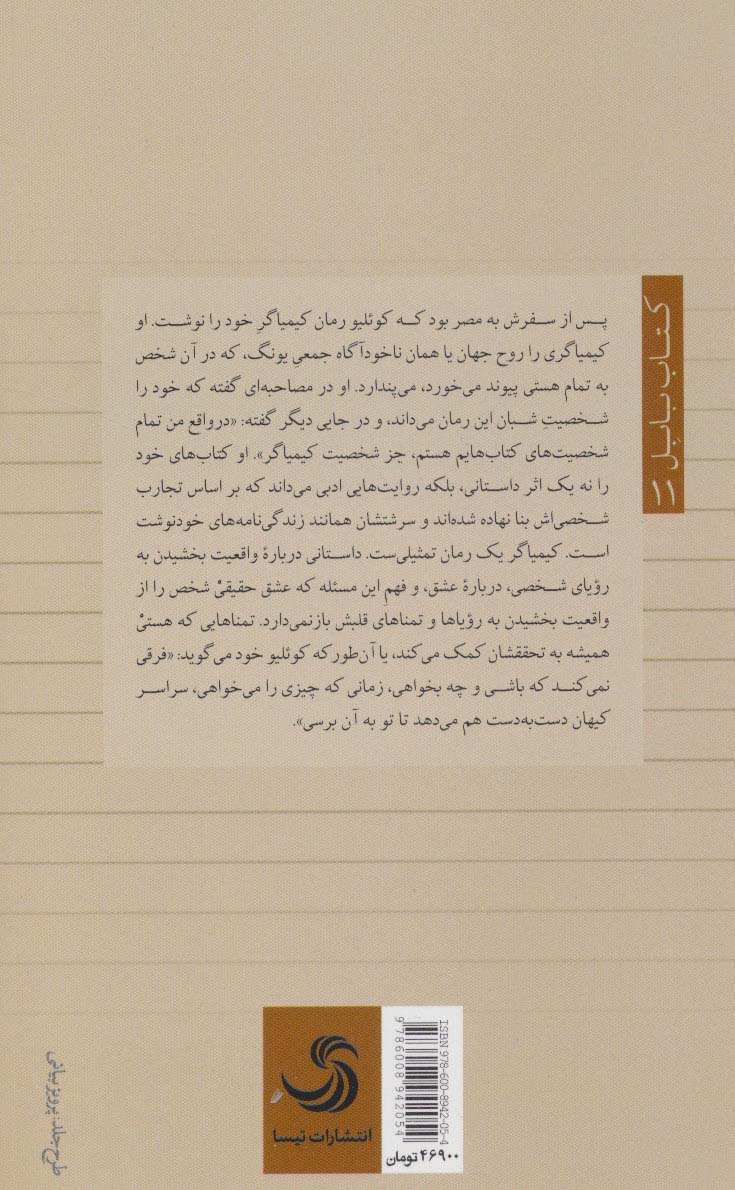 کتاب بابل
پس از سفرش به مصر بود که کوئلیو رمان کیمیاگرِ خود را نوشت. او
کیمیاگری را روح جهان یا همان ناخودآگاه جمعیِ یونگ، که در آن شخص
به تمام هستی پیوند می‌خورد، می‌پندارد. او در مصاحبه‌ای گفته که خود را
شخصیتِ شبان این رمان می‌داند، و در جایی دیگر گفته: «درواقع من تمام
شخصیت‌های کتاب‌هایم هستم، جز شخصیت کیمیاگر». او کتاب‌های خود
را نه یک اثر داستانی، بلکه روایت‌هایی ادبی می‌داند که بر اساس تجارب
شخصی‌اش بنا نهاده شده‌اند و سرشتشان همانند زندگی‌نامه‌های خودنوشت
است. کیمیاگر یک رمان تمثیلی‌ست. داستانی دربارۀ واقعیت بخشیدن به
رؤیای شخصی، دربارۀ عشق، و فهمِ این مسئله که عشق حقیقیْ شخص را از
واقعیت بخشیدن به رؤیاها و تمناهای قلبش بازنمی‌دارد. تمناهایی که هستیْ
همیشه به تحققشان کمک می‌کند، یا آن‌طور که کوئلیو خود می‌گوید: «فرقی
نمی‌کند که باشی و چه بخواهی، زمانی که چیزی را می‌خواهی، سراسر
کیهان دست‌به‌دست هم می‌دهد تا تو به آن برسی».
ISBN 978-600-8942-05-4
9 786008 942054
۴۶۹۰۰ تومان
انتشارات تیسا
طرح جلد: پرویز بیانی